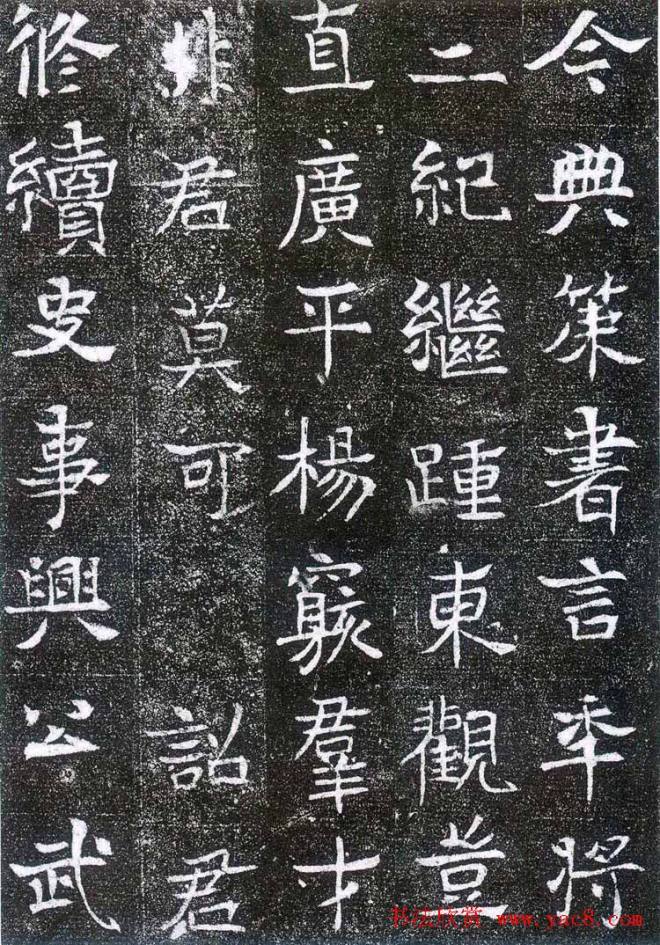 今典策書言將
二紀繼踵東觀豈
直廣平楊覈羣才
非君莫可 詔君
修續史事興公武
书法欣赏 www.yac8.com